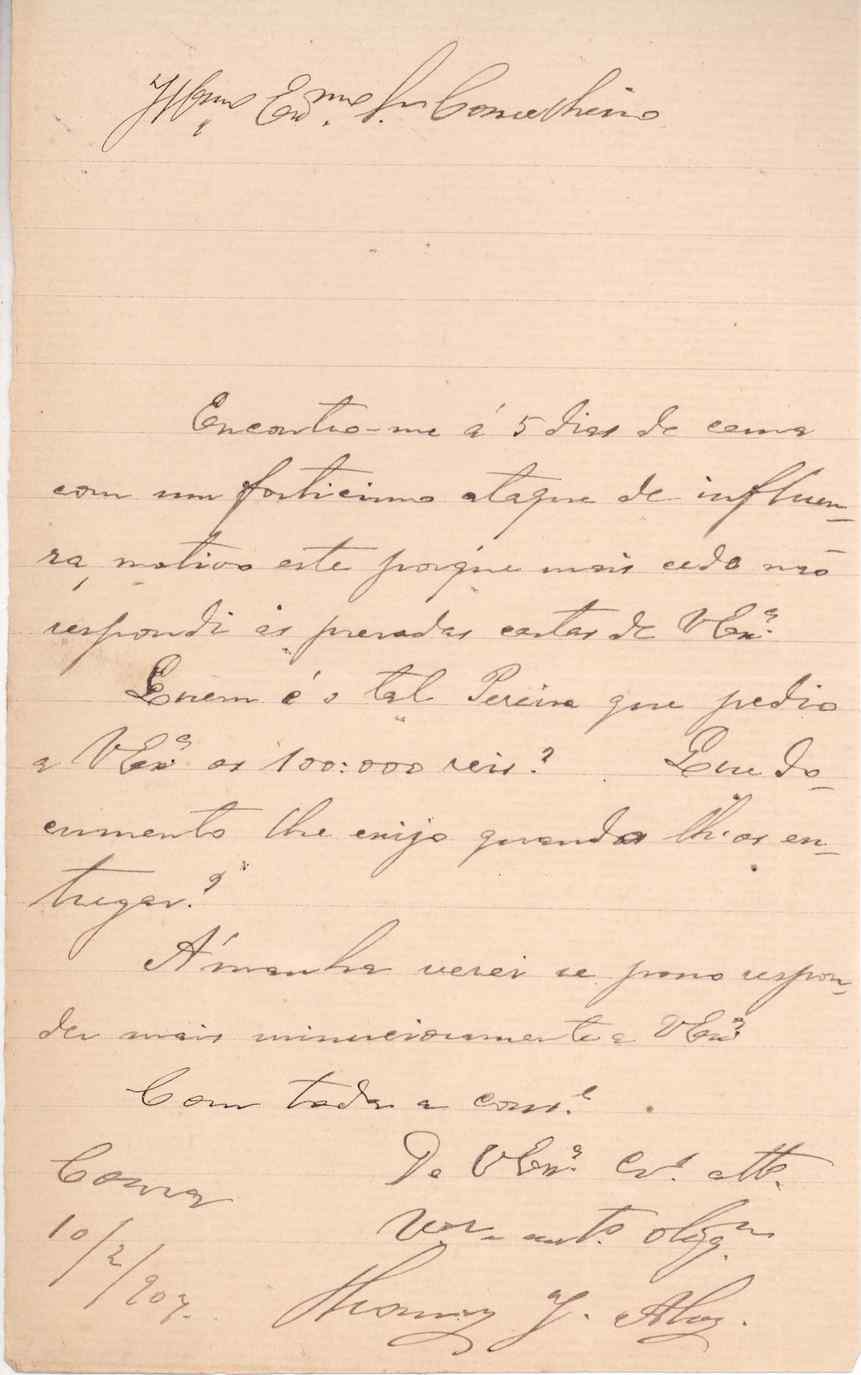 Illmo Exmo Sr Conselheiro
Encontro-me á 5 dias de cama
com um forticimo ataque de influen-
za, motivo este porque mais cedo não
respondi ás prezadas cartas de VExª.
Quem é o tal Pereira que pedio
a VExª os 100:000 reis? Que do-
cumento lhe exijo quando lh'os en-
tregar?
Á'manha verei se posso respon-
der mais minuciosamente a VExª
Com toda a consª.
De VExª. Crº. attº.
Vor. e muitº. obrigº.
Coura
10/2/907.
Thomaz J. Alvz.